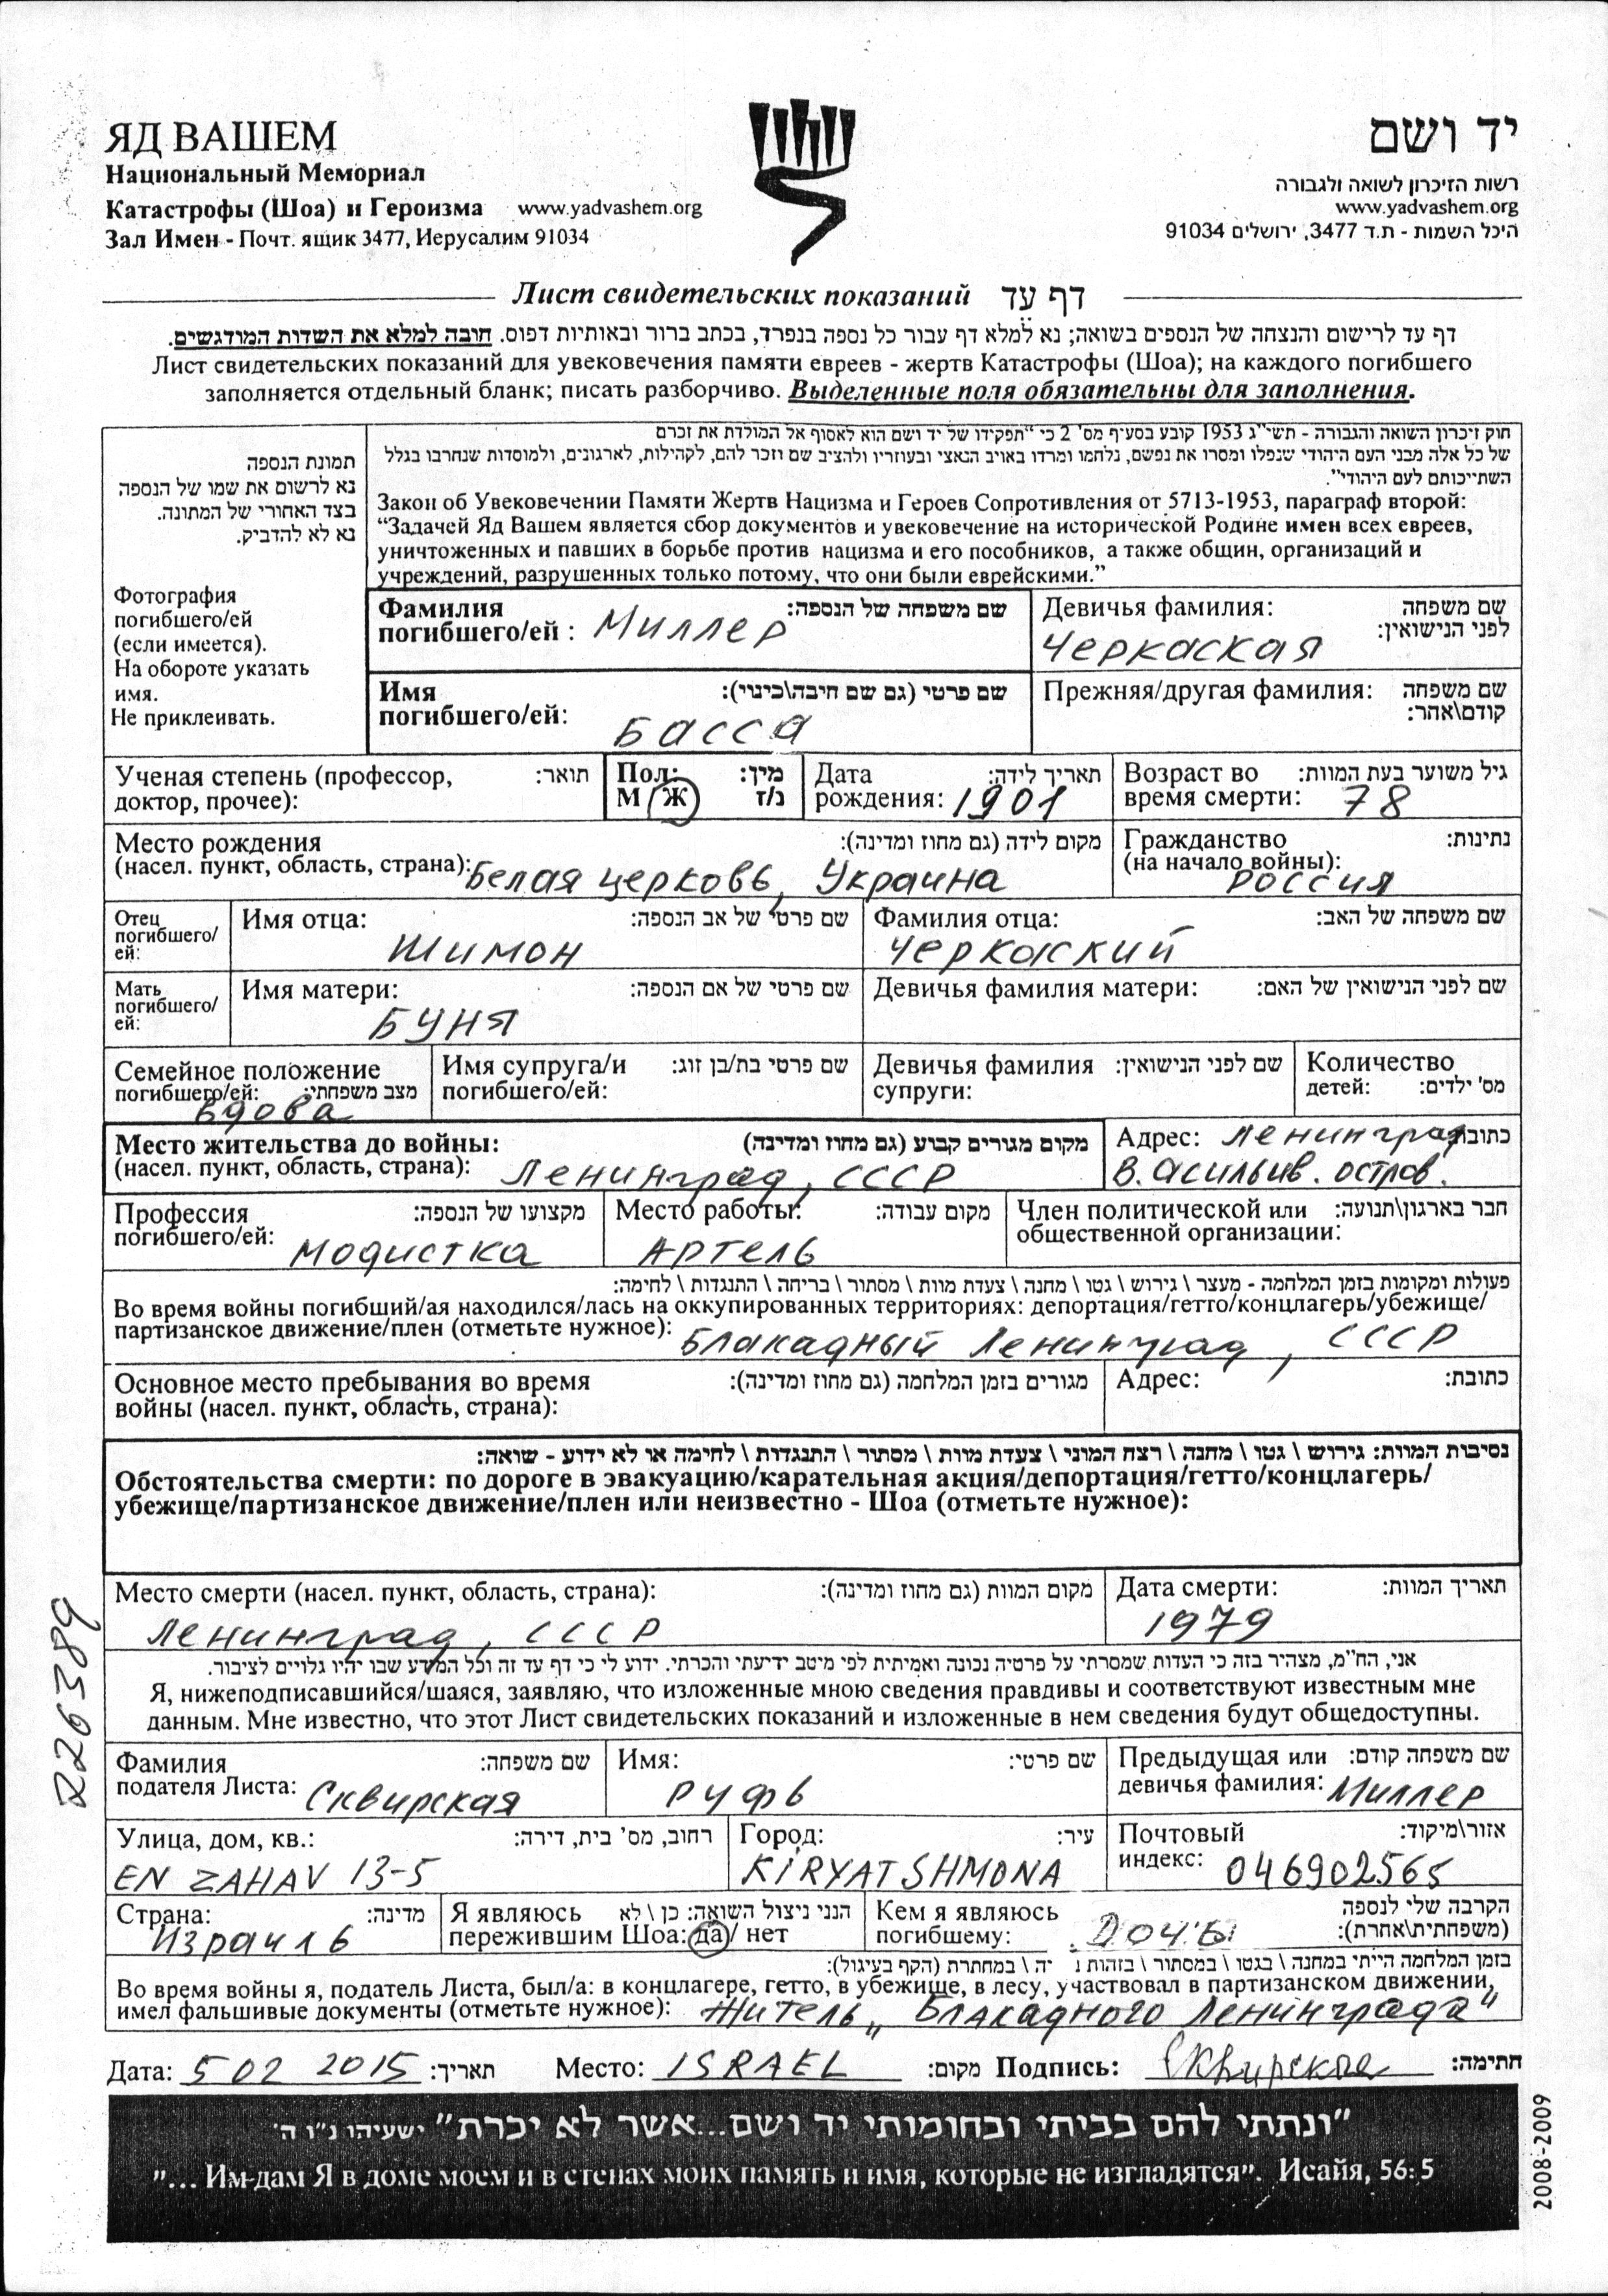 ЯД ВАШЕМ
Национальный Мемориал
Катастрофы (Шоа) и Героизма www.yadvashem.org
Зал Имен - Почт. ящик 3477, Иерусалим 91034
יד ושם
רשות הזיכרון לשואה ולגבורה
www.yadvashem.org
היכל השמות - ת.ד 3477, ירושלים 91034
Лист свидетельских показаний דף עד
דף עד לרישום והנצחה של הנספים בשואה; נא למלא דף עבור כל נספה בנפרד, בכתב ברור ובאותיות דפוס. חובה למלא את השדות המודגשים.
Лист свидетельских показаний для увековечения памяти евреев - жертв Катастрофы (Шоа); на каждого погибшего
заполняется отдельный бланк; писать разборчиво. Выделенные поля обязательны для заполнения.
תמונת הנספה
נא לרשום את שמו של הנספה
בצד האחורי של התמונה.
נא לא להדביק.
Фотография
погибшего/ей
(если имеется).
На обороте указать
имя.
Не приклеивать.
חוק זיכרון השואה והגבורה - תשי"ג 1953 קובע בסעיף מס' 2 כי "תפקידו של יד ושם הוא לאסוף אל המולדת את זכרם
של כל אלה מבני העם היהודי שנפלו ומסרו את נפשם, נלחמו ומרדו באויב הנאצי ובעוזריו ולהציב שם וזכר להם, לקהילות, לארגונים, ולמוסדות שנחרבו בגלל
השתייכותם לעם היהודי".
Закон об Увековечении Памяти Жертв Нацизма и Героев Сопротивления от 5713-1953, параграф второй:
“Задачей Яд Вашем является сбор документов и увековечение на исторической Родине имен всех евреев,
уничтоженных и павших в борьбе против нацизма и его пособников, а также общин, организаций и
учреждений, разрушенных только потому, что они были еврейскими.”
Фамилия שם משפחה של הנספה:
погибшего/ей : Миллер
Девичья фамилия: שם משפחה
לפני הנישואין:
Черкаская
Имя שם פרטי (גם שם חיבה\כינוי):
погибшего/ей:
Басса
Прежняя/другая фамилия: שם משפחה
קודם\אחר:
Ученая степень (профессор, תואר:
доктор, прочее):
Пол: מין:
М /Ж ז/נ
Дата תאריך לידה:
рождения: 1901
Возраст во גיל משוער בעת המוות:
время смерти: 78
Место рождения מקום לידה (גם מחוז ומדינה):
(насел. пункт, область, страна): Белая церковь, Украина
Гражданство נתינות:
(на начало войны):
Россия
Отец
погибшего/
ей:
Имя отца: שם פרטי של אב הנספה:
Шимон
Фамилия отца: שם משפחה של האב:
Черкаский
Мать
погибшего/
ей:
Имя матери: שם פרטי של אם הנספה:
Буня
Девичья фамилия матери: שם לפני הנישואין של האם:
Семейное положение
погибшего/ей: מצב משפחתי:
вдова
Имя супруга/и שם פרטי בת/בן זוג:
погибшего/ей:
Девичья фамилия שם לפני הנישואין:
супруги:
Количество
детей: מס' ילדים:
Место жительства до войны: מקום מגורים קבוע (גם מחוז ומדינה)
(насел. пункт, область, страна): Ленинград, СССР
Адрес: Ленинград כתובת
В.асильив. остров.
Профессия מקצועו של הנספה:
погибшего/ей:
Модистка
Место работы: מקום עבודה:
Артель
Член политической или חבר בארגון\תנועה:
общественной организации:
פעולות ומקומות בזמן המלחמה - מעצר \ גירוש \ גטו \ מחנה \ צעדת מוות \ מסתור \ בריחה \ התנגדות \ לחימה:
Во время войны погибший/ая находился/лась на оккупированных территориях: депортация/гетто/концлагерь/убежище/
партизанское движение/плен (отметьте нужное): Блакадный Ленинград, СССР
Основное место пребывания во время מגורים בזמן המלחמה (גם מחוז ומדינה):
войны (насел. пункт, область, страна):
Адрес: כתובת:
נסיבות המוות: גירוש \ גטו \ מחנה \ רצח המוני \ צעדת מוות \ מסתור \ התנגדות \ לחימה או לא ידוע - שואה:
Обстоятельства смерти: по дороге в эвакуацию/карательная акция/депортация/гетто/концлагерь/
убежище/партизанское движение/плен или неизвестно - Шоа (отметьте нужное):
Место смерти (насел. пункт, область, страна): מקום המוות (גם מחוז ומדינה):
Ленинград, СССР
Дата смерти: תאריך המוות:
1979
אני, הח"מ, מצהיר בזה כי העדות שמסרתי על פרטיה נכונה ואמיתית לפי מיטב ידיעתי והכרתי. ידוע לי כי דף עד זה וכל המידע שבו יהיו גלויים לציבור.
Я, нижеподписавшийся/шаяся, заявляю, что изложенные мною сведения правдивы и соответствуют известным мне
данным. Мне известно, что этот Лист свидетельских показаний и изложенные в нем сведения будут общедоступны.
Фамилия שם משפחה:
подателя Листа: Сквирская
Имя: שם פרטי:
Руфь
Предыдущая или שם משפחה קודם:
девичья фамилия: Миллер
Улица, дом, кв.: רחוב, מס' בית, דירה:
EN ZAHAV 13-5
Город: עיר:
KIRYAT SHMONA
Почтовый אזור\מיקוד:
индекс: 046902565
Страна: מדינה:
Израиль
Я являюсь הנני ניצול השואה: כן \ לא
пережившим Шоа: да/ нет
Кем я являюсь הקרבה שלי לנספה
погибшему: (משפחתית\אחרת):
Дочь
בזמן המלחמה הייתי במחנה \ בגטו \ במסתור \ בזהות יה \ במחתרת (הקף בעיגול):
Во время войны я, податель Листа, был/а: в концлагере, гетто, в убежище, в лесу, участвовал в партизанском движении,
имел фальшивые документы (отметьте нужное): Житель „ Блакадного Ленинграда"
Дата: 5 02 2015 תאריך: Место: ISRAEL מקום: Подпись: Сквирская חתימה:
"ונתתי להם בביתי ובחומותי יד ושם...אשר לא יכרת" ישעיהו נ"ו ה'
"... Им-дам Я в доме моем и в стенах моих память и имя, которые не изгладятся". Исайя, 56: 5
226389
2008-2009